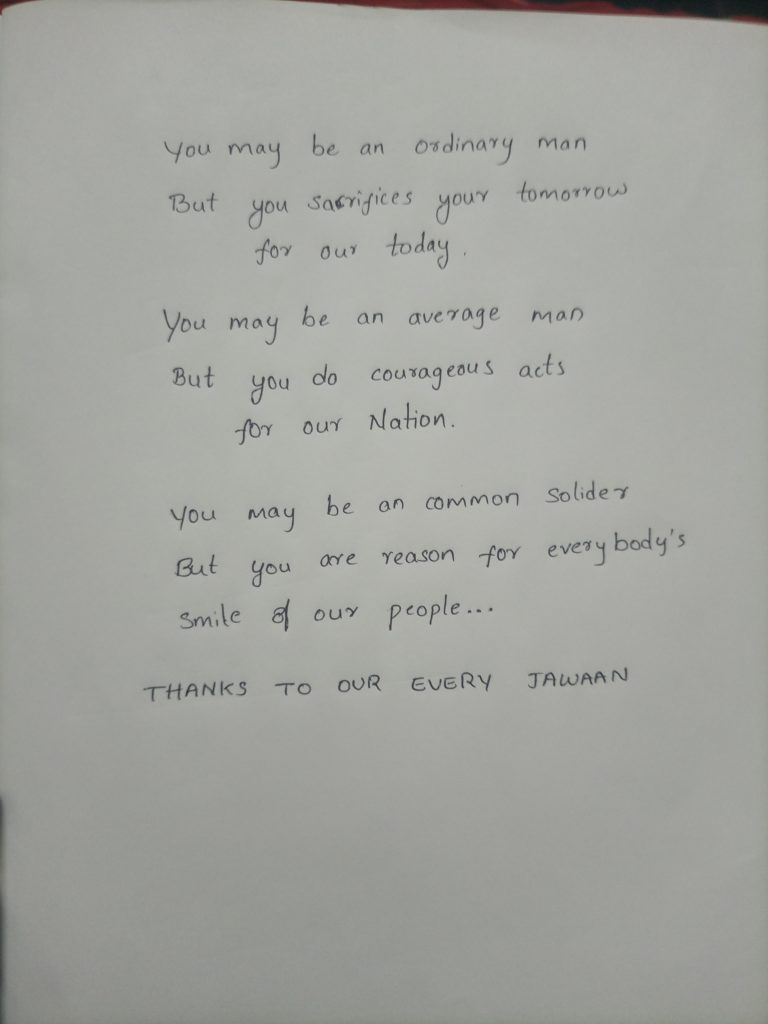 You may be an ordinary man
But you sacrifices your tomorrow
for our today.
You may be an average man
But you do courageous acts
for our Nation.
You may be an common Solider
But you are reason for everybody's
smile of our people...
THANKS TO OUR EVERY JAWAAN